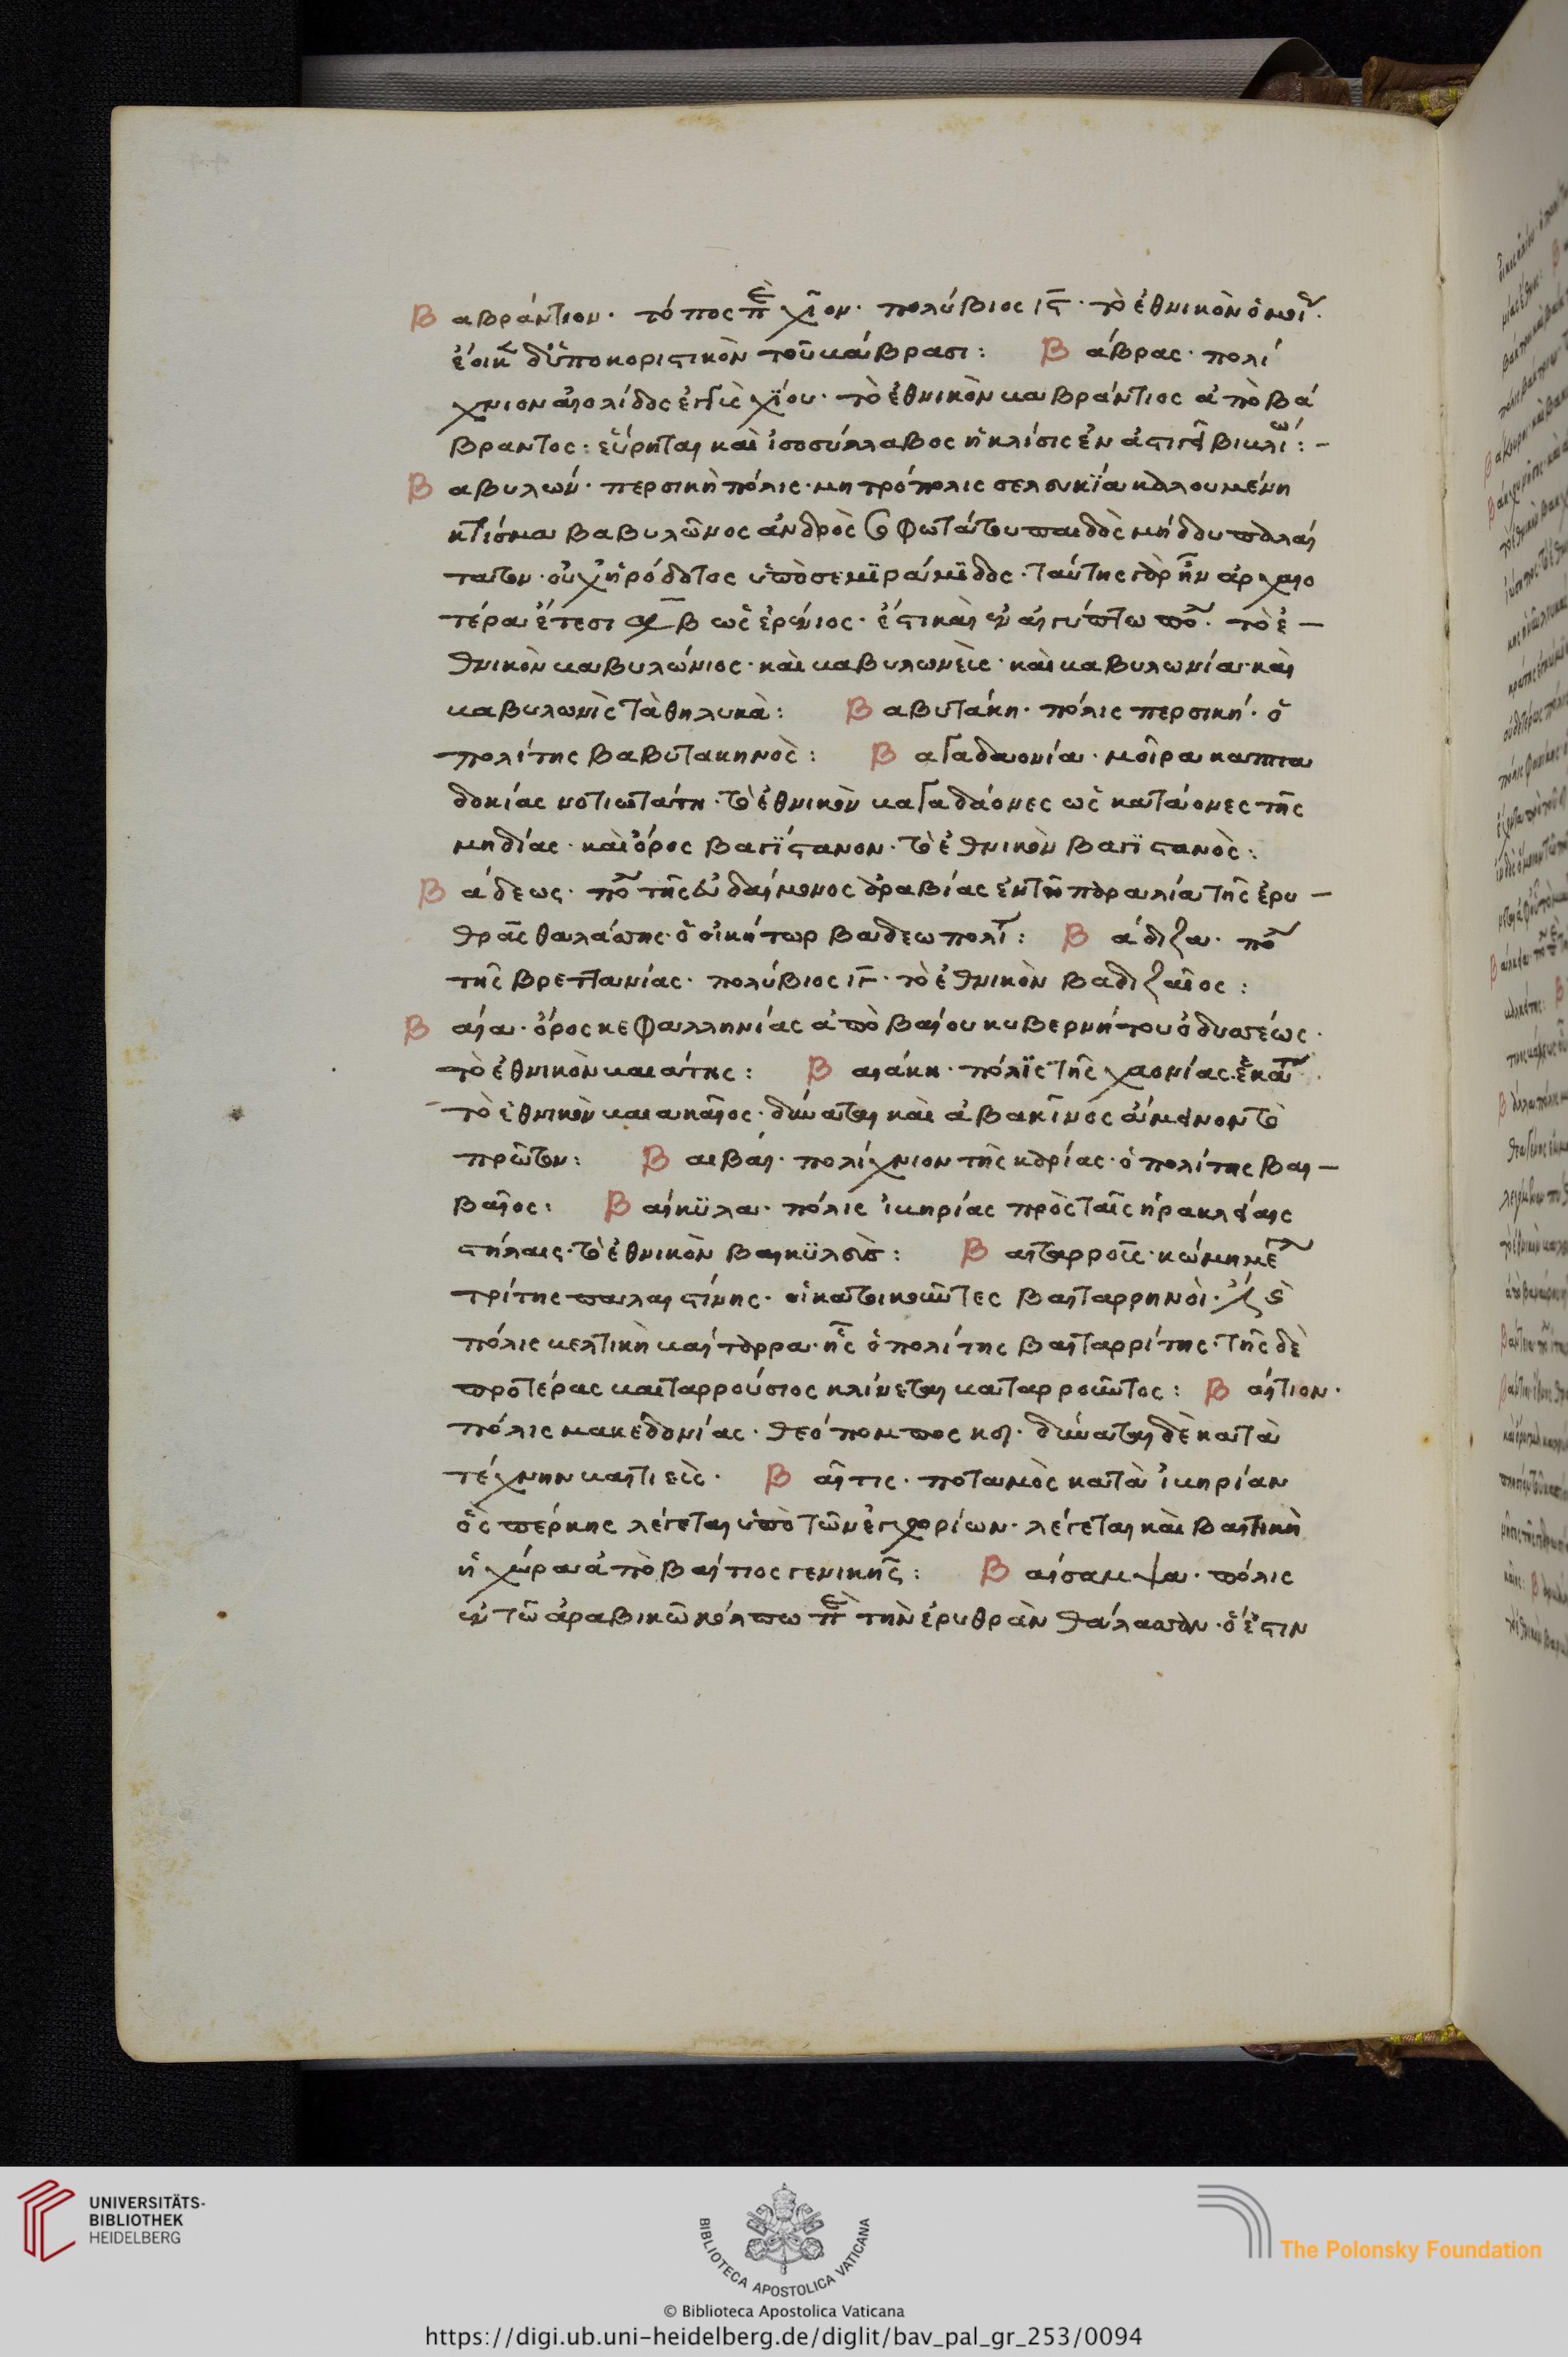 Βαβράντιον· τόπος περὶ χῖον· πολύβιος ις· τὸ ἐθνικὸν ὁμοί·
ἔοικ δ' ὑποκοριστικὸν τοῦ βάβρασι: Βάβρας· πολί
χνιον αἰολίδος ἐγγὺς χΐου· τὸ ἐθνικὸν βαβράντιος ἀπὸ βά
βραντος: εὕρηται καὶ ἰσοσύλλαβος ἡ κλίσις ἐν
Βαβυλών· περσικὴ πόλις· μητρόπολις σελευκΐα καλουμένη
κτίσμα βαβυλῶνος ἀνδρὸς σοφωτάτου παιδὸς μήδου παλαι
τάτου· οὐχ ἡρόδοτος ὑπὸ σεμϊράμϊδος· ταύτης γὰρ ἦν ἀρχαιο
τέρα ἔτεσι β ὡς ἑρένιος· ἔστι καὶ ἐν αἰγύπτω πό· τὸ ἐ–
θνικὸν βαβυλώνιος· καὶ βαβυλωνεὶς· καὶ βαβυλωνία καὶ
βαβυλωνὶς τὰ θηλυκὰ: Βαβυτάκη· πόλις περσική· ὁ
πολίτης βαβυτακηνὸς: Βαγαδαονία· μοῖρα καππα
δοκίας νοτιωτάτη· τὸ ἐθνικὸν βαγαδάονες ὡς καταίονες τῆς
μηδίας· καὶ ὄρος βαγΐστανον· τὸ ἐθνικὸν βαγϊστανὸς:
Βάδεως· πό τῆς εὐδαίμονος ἀραβίας ἐν τῆ παραλία τῆς ἐρυ–
θρᾶς θαλάσσης· ὁ οἰκήτωρ βαδεωπολί: Βάδιζα· πό
τῆς βρεττανίας· πολύβιος ιγ· τὸ ἐθνικὸν βαδιζαῖος:
Βαία· ὄρος κεφαλληνίας ἀπὸ βαίου κυβερνήτου ὀδυσσέως·
τὸ ἐθνικὸν βαιάτης: Βαιάκη· πόλϊς τῆς χαονίας· ἑκατ
τὸ ἐθνικὸν βαιακαῖος· δύναται καὶ ἀβακῖνος ἄμεινον τὸ
πρῶτον: Βαιβαί· πολίχνιον τῆς καρίας· ὁ πολίτης βαι–
βαῖος: Βαίκϋλα· πόλις ἰβηρίας πρὸς ταῖς ἡρακλείαις
στήλαις· τὸ ἐθνικὸν βαικϋλεὺς: Βαιταρροῖς· κώμη με
τρίτης παλαιστίνης· οἱ κατοικοῦντες βαιταρρηνοὶ·
πόλις κελτικὴ βαίταρρα· ἧς ὁ πολίτης βαιταρρίτης· τῆς δὲ
προτέρας βαιταρρούσιος κλίνεται βαιταρροῦντος: Βαίτιον·
πόλις μακεδονίας· θεόπομπος κθ· δύναται δὲ κατὰ
τέχνην βαιτιεὶς· Βαῖτις· ποταμὸς κατὰ ἰβηρίαν
ὃς πέρκης λέγεται ὑπὸ τῶν ἐγχωρίων· λέγεται καὶ βαιτικὴ
ἡ χώρα ἀπὸ βαίτιος γενικῆς: Βαίσαμψα· πόλις
ἐν τῶ ἀραβικῶ κόλπω περὶ τὴν ἐρυθρὰν θάλασσαν· ὅ ἐστιν
UNIVERSITÄTS-
BIBLIOTHEK
HEIDELBERG
BIBLIOTECA APOSTOLICA VATICANA
The Polonsky Foundation
© Biblioteca Apostolica Vaticana
https://digi.ub.uni-heidelberg.de/diglit/bav_pal_gr_253/0094